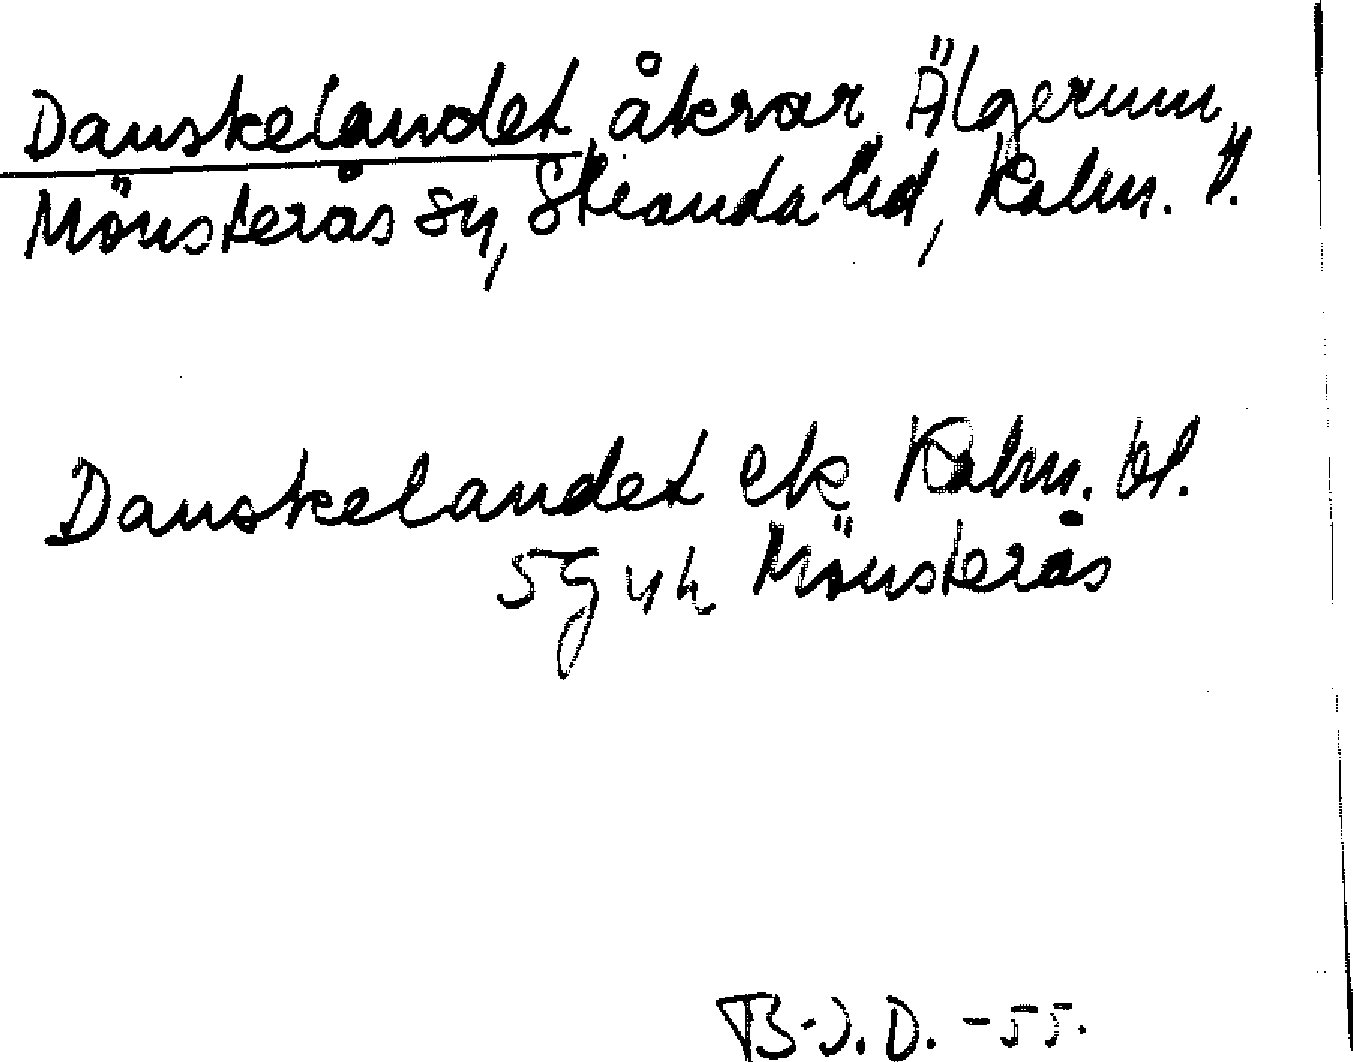 Danskelandet, åkrar, Älgerum,
Mönsterås sn, Stranda hd, Kalm. l.
Danskelandet ek Kalm. bl.
5g 4h Mönsterås
B-J.D. -55.